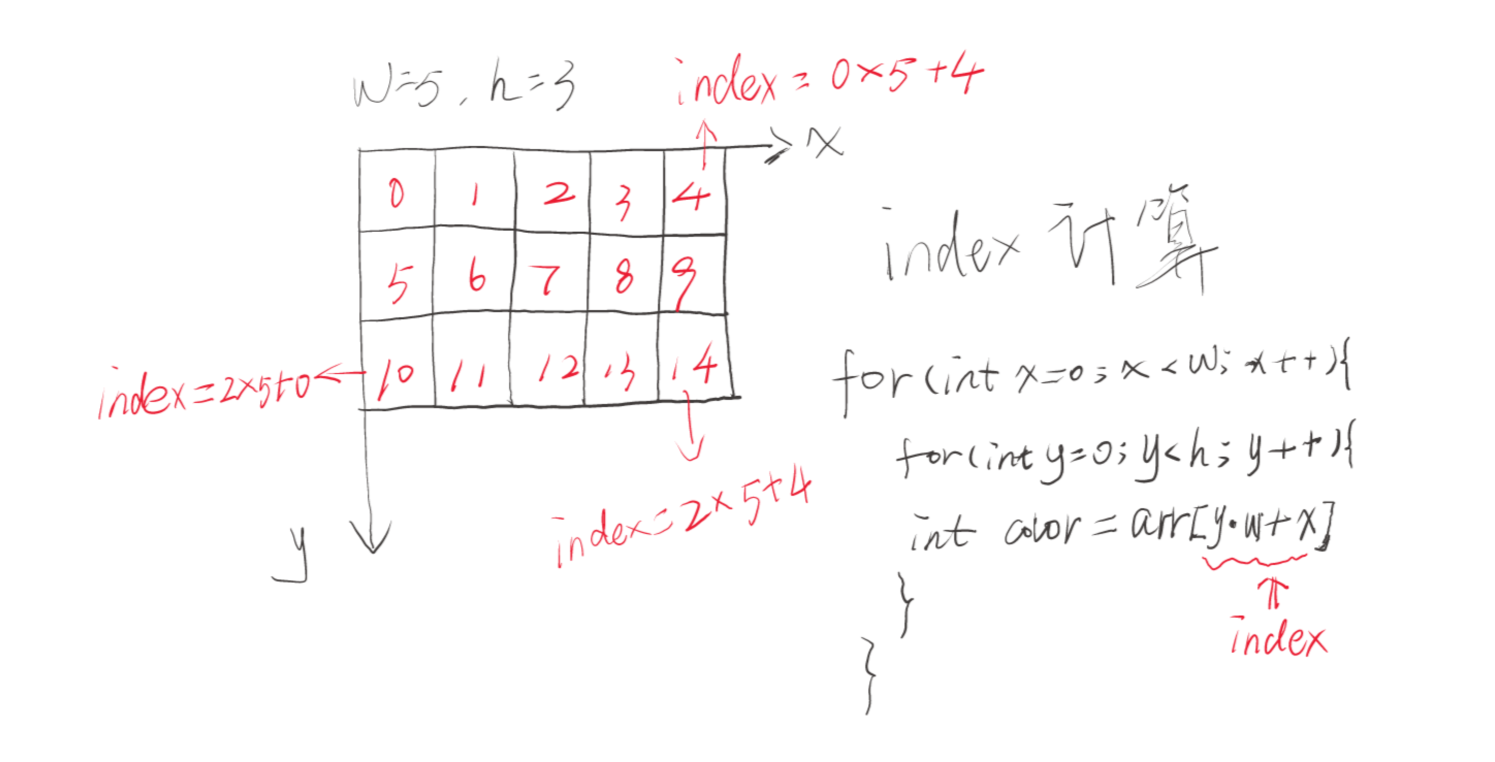 W=5, h=3
index = 0×5+4
x
0 1 2 3 4
5 6 7 8 9
10 11 12 13 14
index=2×5+0
index=2×5+4
y
index 计算
for(int x=0; x<w; x++){
for(int y=0; y<h; y++){
int color = arr[y·w+x]
}
}
index